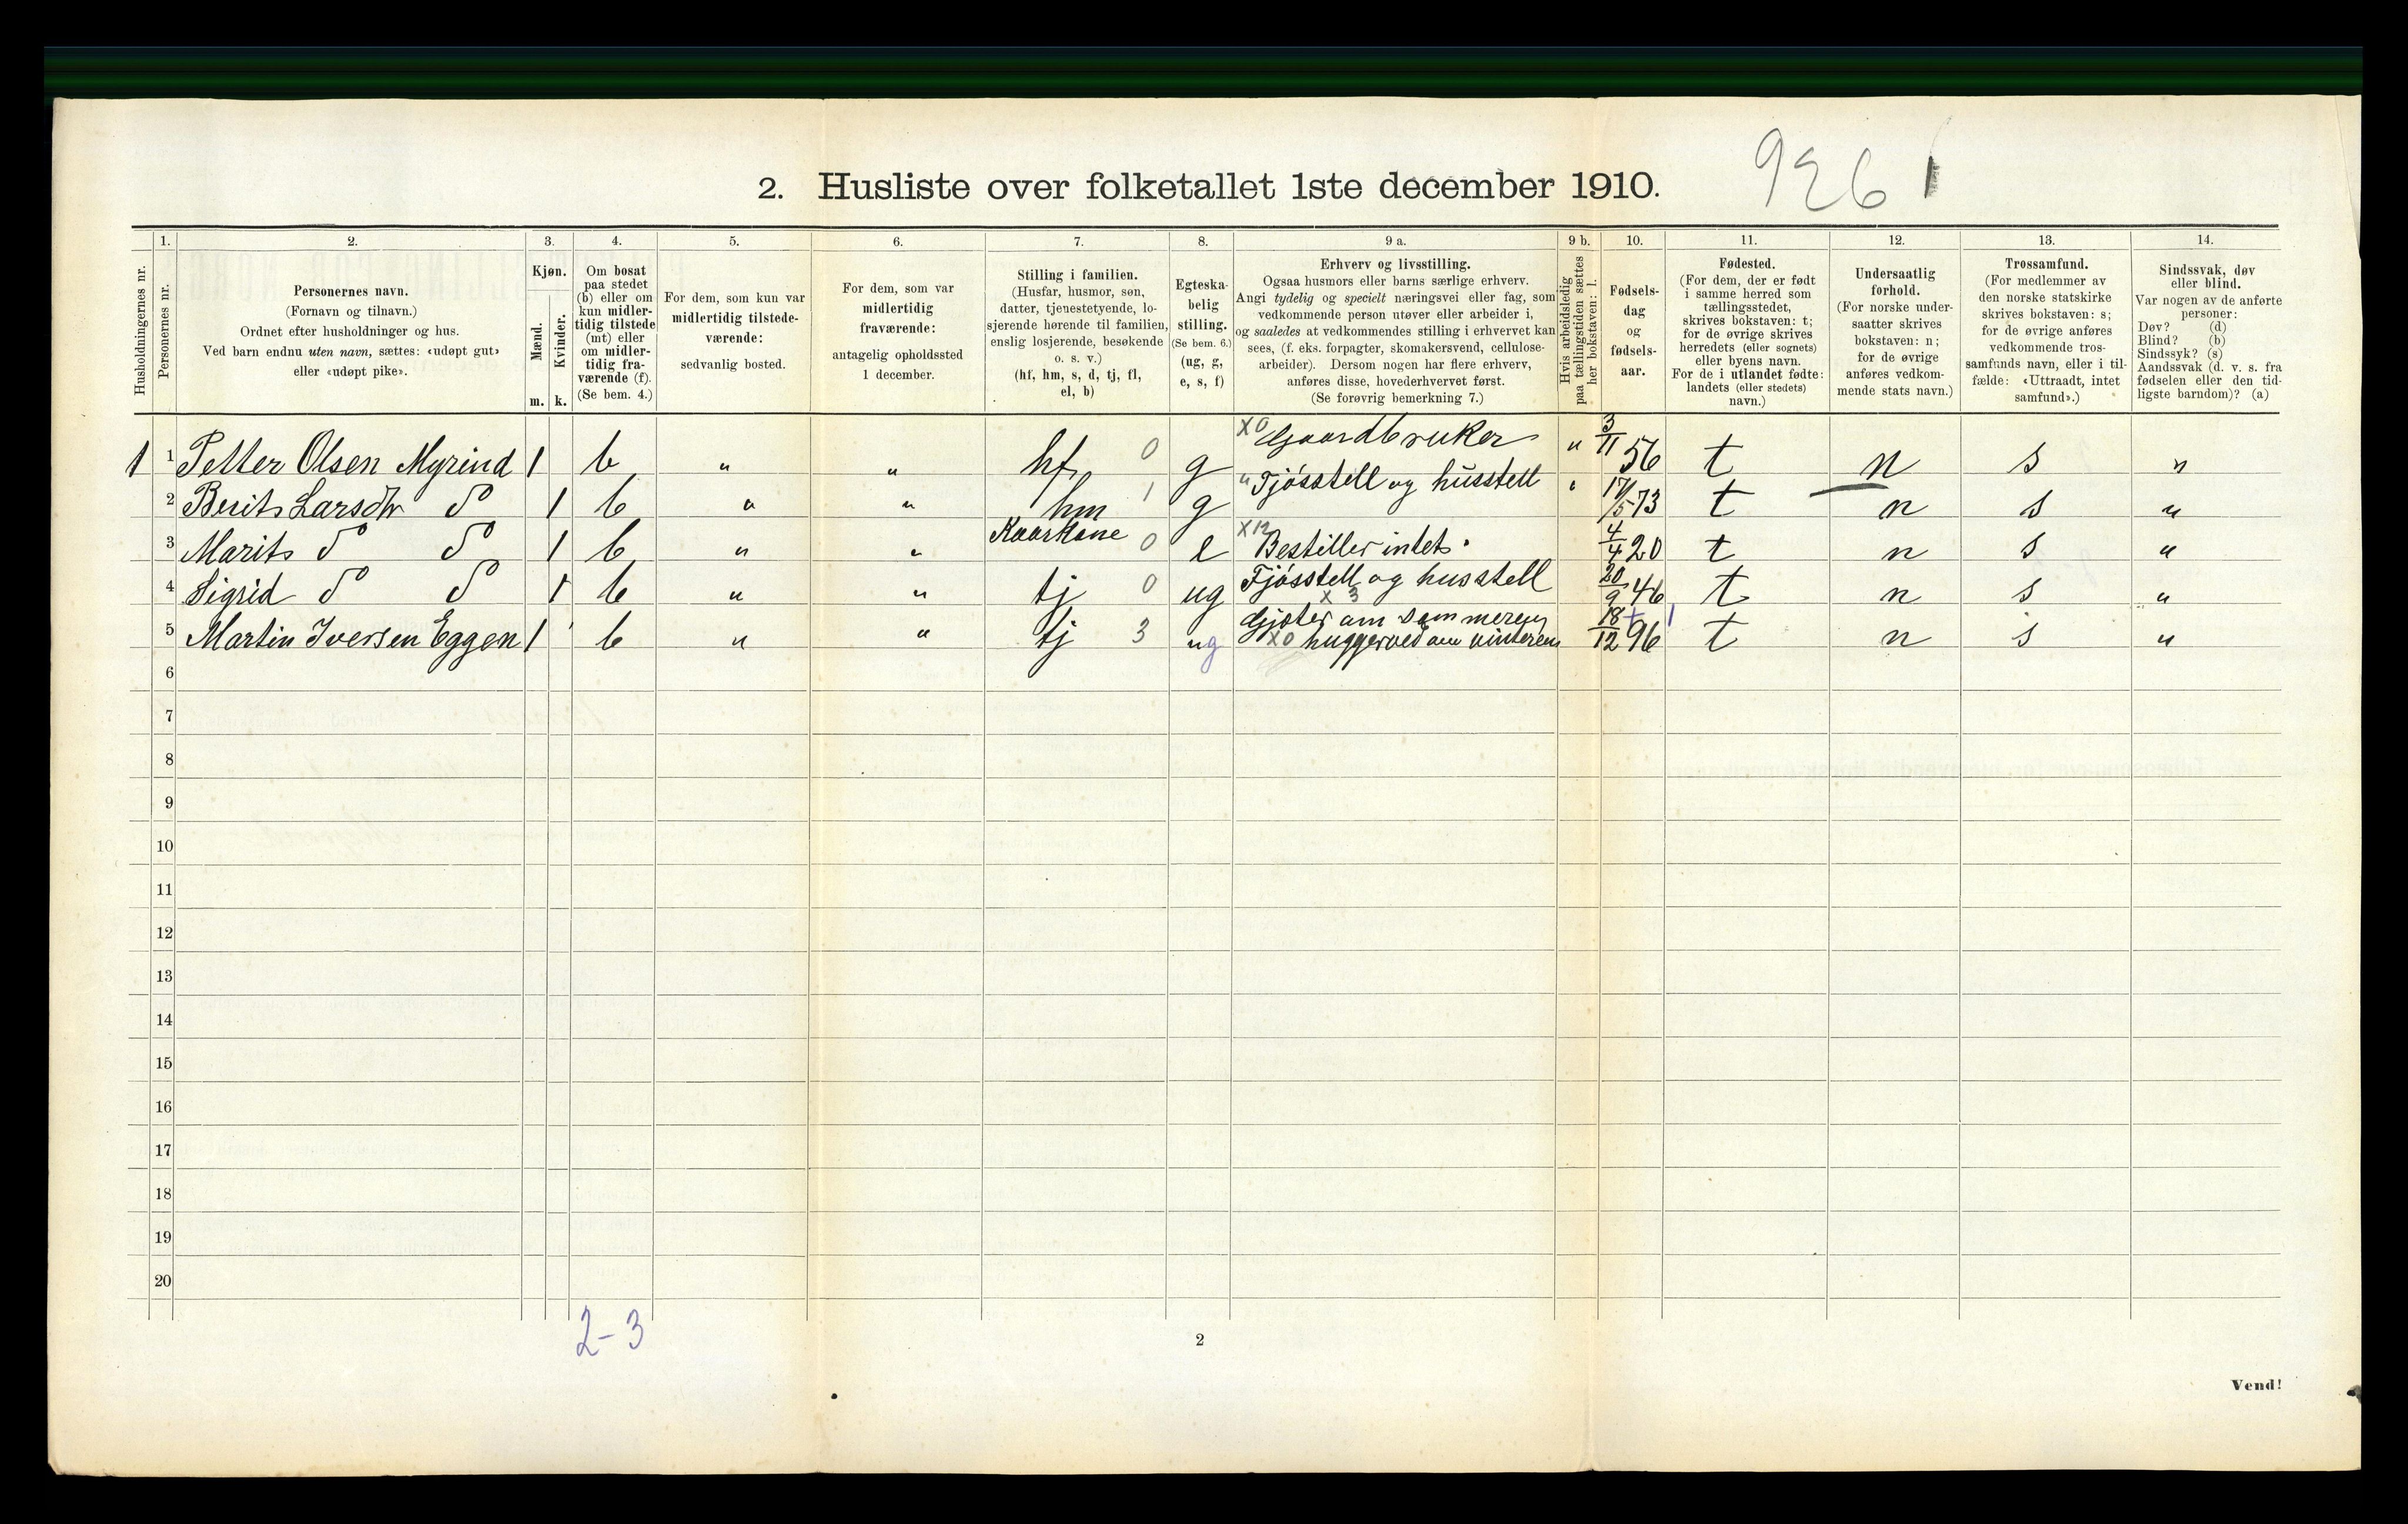 9261
2. Husliste over folketallet 1ste december 1910.
Husholdningernes nr.
1.
Personernes nr.
2.
Personernes navn.
(Fornavn og tilnavn.)
Ordnet efter husholdninger og hus.
Ved barn endnu uten navn, sættes: «udøpt gut»
eller «udøpt pike».
3.
Kjøn.
Mænd.
Kvinder.
m. k.
4.
Om bosat
paa stedet
(b) eller om
kun midler-
tidig tilstede
(mt) eller
om midler-
tidig fra-
værende (f).
(Se bem. 4.)
5.
For dem, som kun var
midlertidig tilstede-
værende:
sedvanlig bosted.
6.
For dem, som var
midlertidig
fraværende:
antagelig opholdssted
1 december.
7.
Stilling i familien.
(Husfar, husmor, søn,
datter, tjenestetyende, lo-
sjerende hørende til familien,
enslig losjerende, besøkende
o. s. v.)
(hf, hm, s, d, tj, fl,
el, b)
8.
Egteska-
belig
stilling.
(Se bem. 6.)
(ug, g,
e, s, f)
9 a.
Erhverv og livsstilling.
Ogsaa husmors eller barns særlige erhverv.
Angi tydelig og specielt næringsvei eller fag, som
vedkommende person utøver eller arbeider i,
og saaledes at vedkommendes stilling i erhvervet kan
sees, (f. eks. forpagter, skomakersvend, cellulose-
arbeider). Dersom nogen har flere erhverv,
anføres disse, hovederhvervet først.
(Se forøvrig bemerkning 7.)
9 b.
Hvis arbeidsledig
paa tællingstiden sættes
her bokstaven: l.
10.
Fødsels-
dag
og
fødsels-
aar.
11.
Fødested.
(For dem, der er født
i samme herred som
tællingsstedet,
skrives bokstaven: t;
for de øvrige skrives
herredets (eller sognets)
eller byens navn.
For de i utlandet fødte:
landets (eller stedets)
navn.)
12.
Undersaatlig
forhold.
(For norske under-
saatter skrives
bokstaven: n;
for de øvrige
anføres vedkom-
mende stats navn.)
13.
Trossamfund.
(For medlemmer av
den norske statskirke
skrives bokstaven: s;
for de øvrige anføres
vedkommende tros-
samfunds navn, eller i til-
fælde: «Uttraadt, intet
samfund».)
14.
Sindssvak, døv
eller blind.
Var nogen av de anførte
personer:
Døv? (d)
Blind? (b)
Sindssyk? (s)
Aandssvak (d. v. s. fra
fødselen eller den tid-
ligste barndom)? (a)
1 1 Petter Olsen Myrind 1 b " " hf 0 g X0 Gaardbruker " 3/11 56 t n s "
2 Berit Larsdtr do 1 b " " hm 1 g " Fjösstell og husstell " 17/5 73 t n s "
3 Marit do do 1 b " " Kaarkone 0 e X12 Bestiller intet. 4/4 20 t n s "
4 Sigrid do do 1 b " " tj 0 ug Fjösstell og husstell X 3 20/9 46 t n s "
5 Martin Iversen Eggen 1 b " " tj 3 ug Gjeter om sommeren
X0 hugger ved om vinteren 18/12 96 t n s "
6
7
8
9
10
11
12
13
14
15
16
17
18
19
20
2-3
2
Vend!